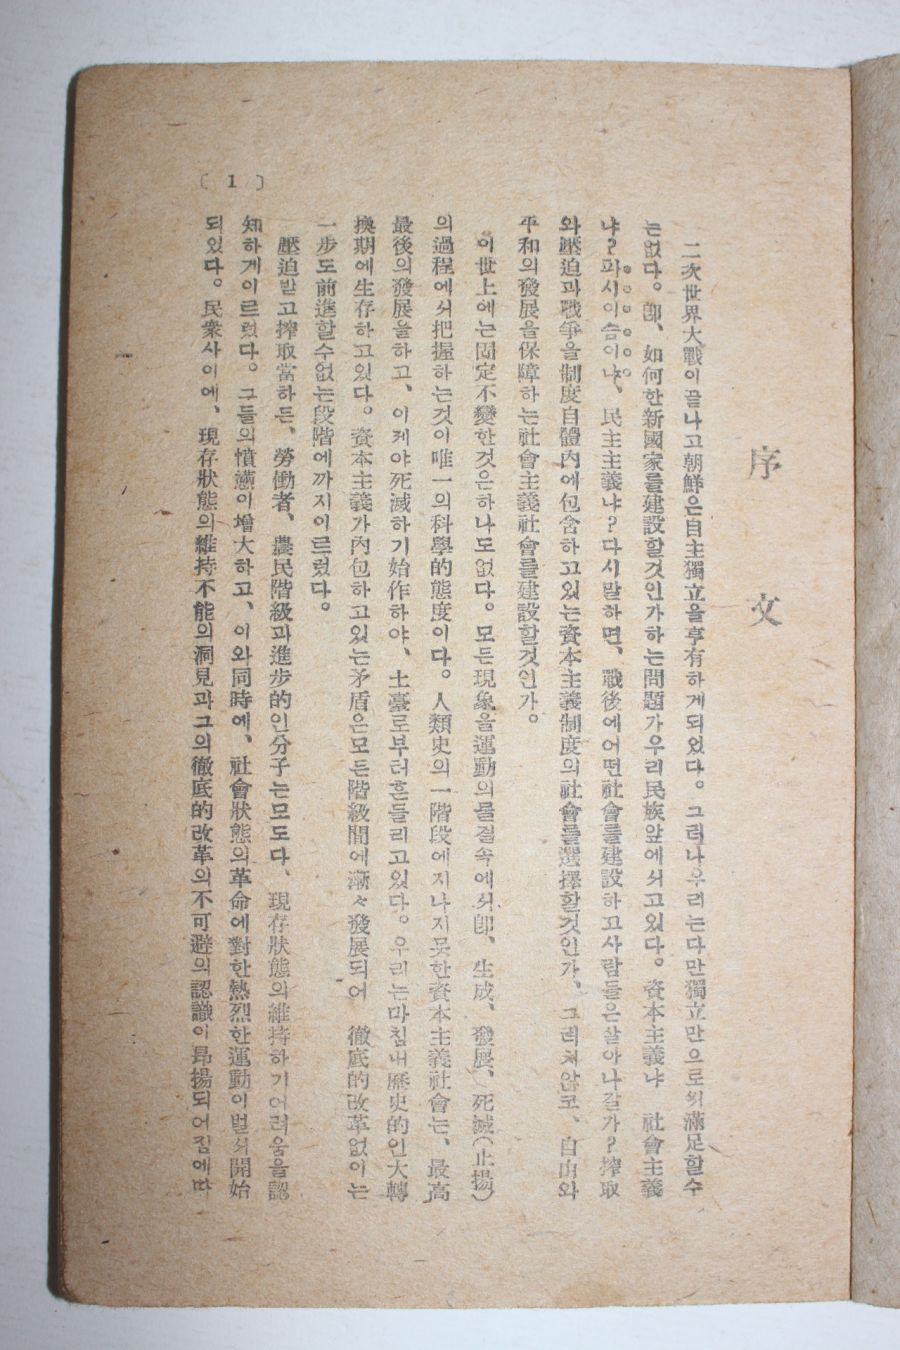 序文
二次世界大戰이끝나고朝鮮은自主獨立을享有하게되었다。그러나우리는다만獨立만으로써滿足할수
는없다。卽、如何한新國家를建設할것인가하는問題가우리民族앞에서고있다。資本主義냐 社會主義
냐?파시이슴이냐、民主主義냐?다시말하면、戰後에어떤社會를建設하고사람들은살아나갈가?搾取
와壓迫과戰爭을制度自體內에包含하고있는資本主義制度의社會를選擇할것인가、그러치않고、自由와
平和의發展을保障하는社會主義社會를建設할것인가。
이世上에는固定不變한것은하나도없다。모든現象을運動의물결속에서卽、生成、發展、死滅(止揚)
의過程에서把握하는것이唯一의科學的態度이다。人類史의一階段에지나지못한資本主義社會는、最高
最後의發展을하고、이제야死滅하기始作하야、土臺로부터흔들리고있다。우리는마침내歷史的인大轉
換期에生存하고있다。資本主義가內包하고있는矛盾은모든階級間에漸々發展되어 徹底的改革없이는
一步도前進할수없는段階에까지이르렀다。
壓迫받고搾取當하든、勞働者、農民階級과進步的인分子는모도다、現存狀態의維持하기어려움을認
知하게이르렀다。그들의憤懣이增大하고、이와同時에、社會狀態의革命에對한熱烈한運動이벌서開始
되있다。民衆사이에、現存狀態의維持不能의洞見과그의徹底的改革의不可避의認識이昂揚되어짐에따
〔1〕